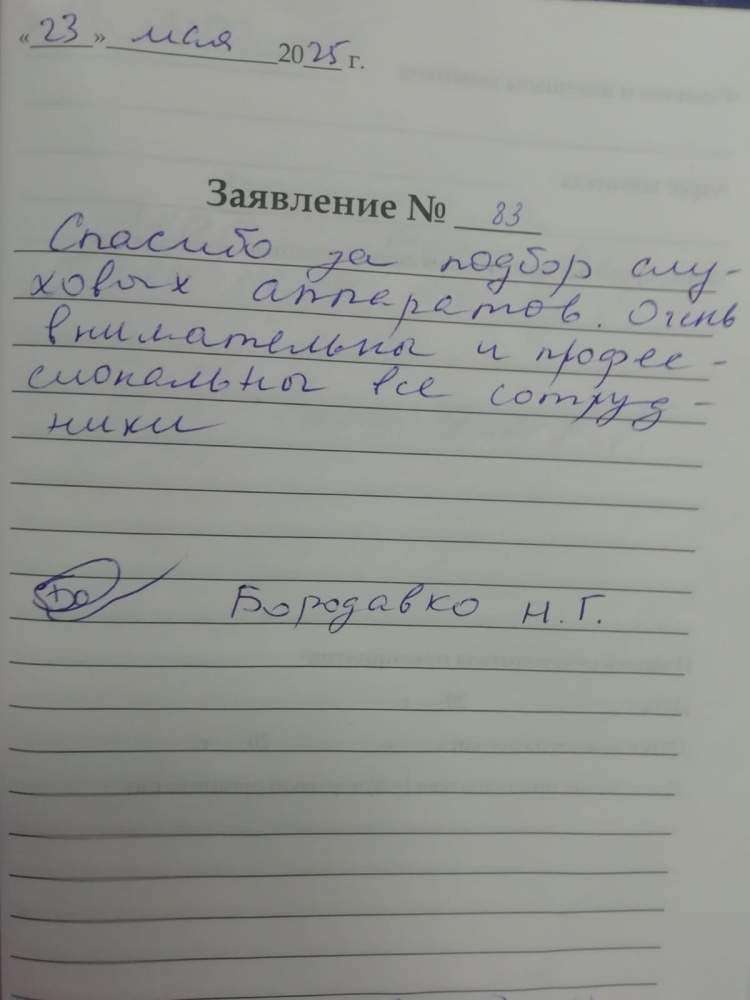 «23» мая 2025 г.
Заявление № 83
Спасибо за подбор слу-
ховых аппаратов. Очень
внимательны и профес-
сиональны все сотруд-
ники
Бо Бородавко Н.Г.